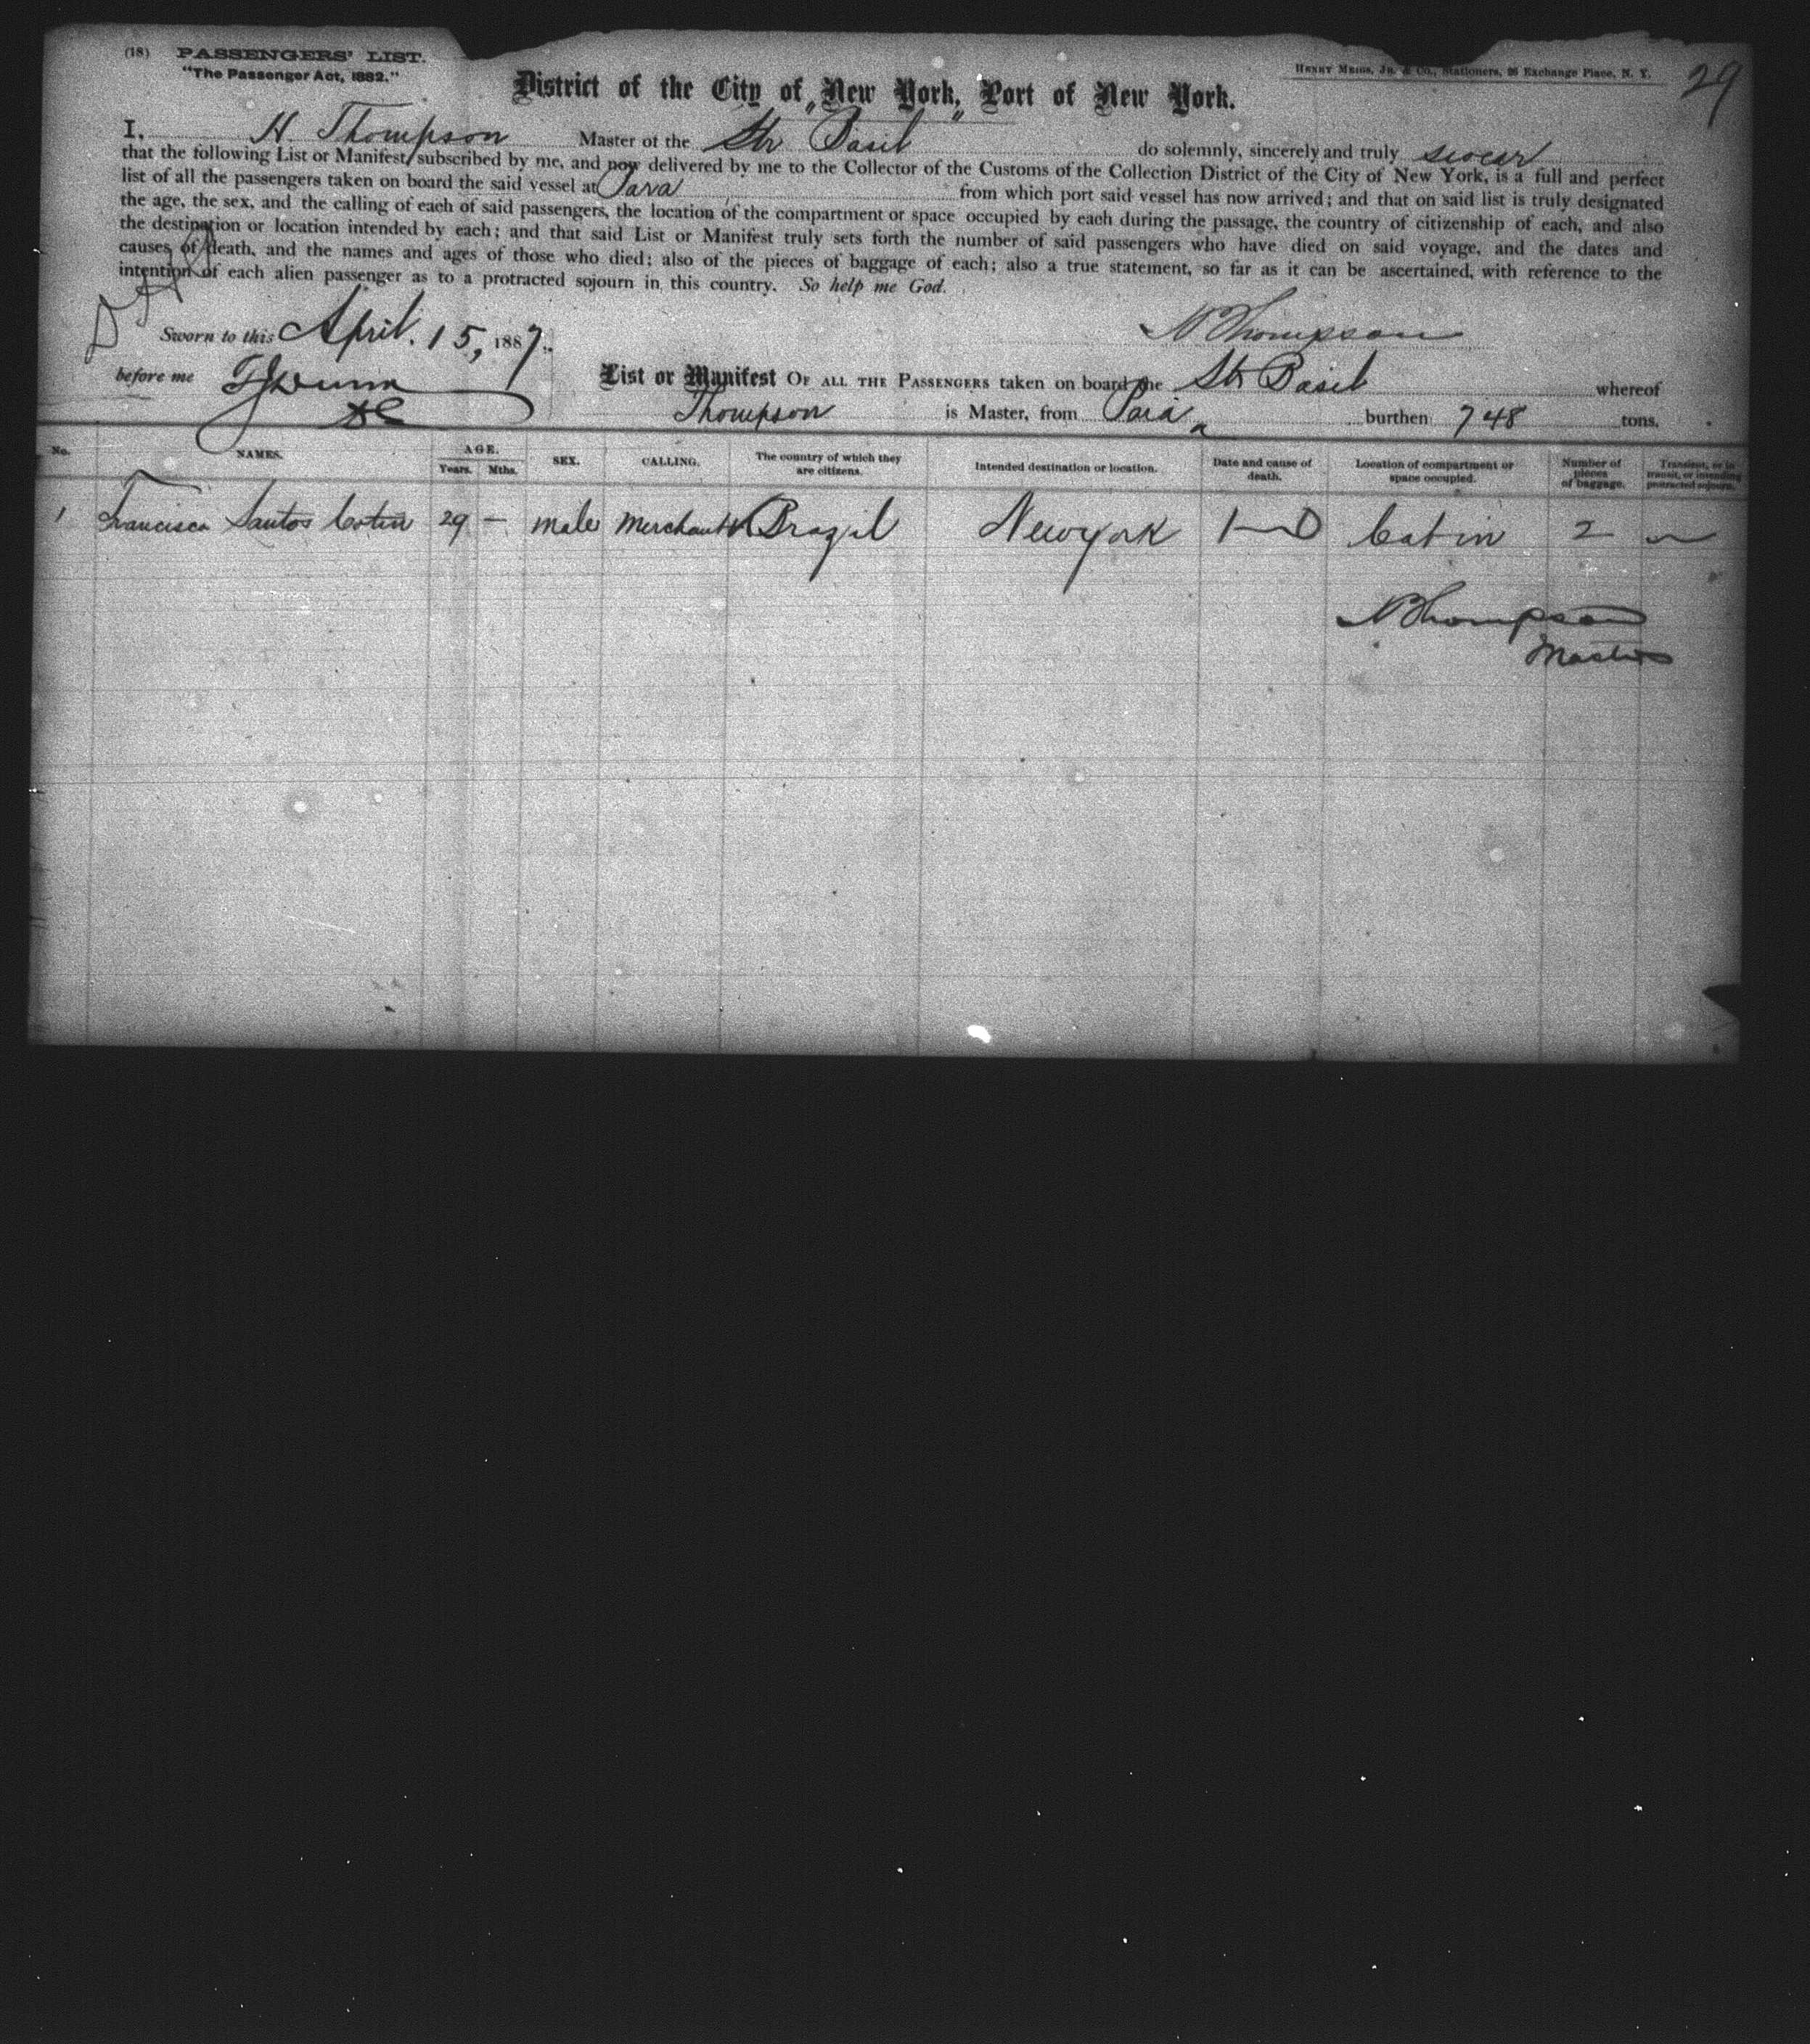 (18) PASSENGERS' LIST.
"The Passenger Act, 1882."
HENRY MEIGS, JR. & CO., Stationers, 26 Exchange Place, N. Y.
29
District of the City of New York, Port of New York.
I, H Thompson Master of the Str "Basil" do solemnly, sincerely and truly swear
that the following List or Manifest, subscribed by me, and now delivered by me to the Collector of the Customs of the Collection District of the City of New York, is a full and perfect
list of all the passengers taken on board the said vessel at Para from which port said vessel has now arrived; and that on said list is truly designated
the age, the sex, and the calling of each of said passengers, the location of the compartment or space occupied by each during the passage, the country of citizenship of each, and also
the destination or location intended by each; and that said List or Manifest truly sets forth the number of said passengers who have died on said voyage, and the dates and
causes of death, and the names and ages of those who died; also of the pieces of baggage of each; also a true statement, so far as it can be ascertained, with reference to the
intention of each alien passenger as to a protracted sojourn in this country. So help me God.
Sworn to this April. 15, 1887.
H Thompson
before me
List or Manifest OF ALL THE PASSENGERS taken on board the Str Basil whereof
Thompson is Master, from Para burthen 748 tons.
No. NAMES. AGE. Years. Mths. SEX. CALLING. The country of which they are citizens. Intended destination or location. Date and cause of death. Location of compartment or space occupied. Number of pieces of baggage. Transient, or in transit, or intending protracted sojourn.
1 Francisco Santos 29 — male Merchant Brazil New york Cabin 2 —
H Thompson
Master